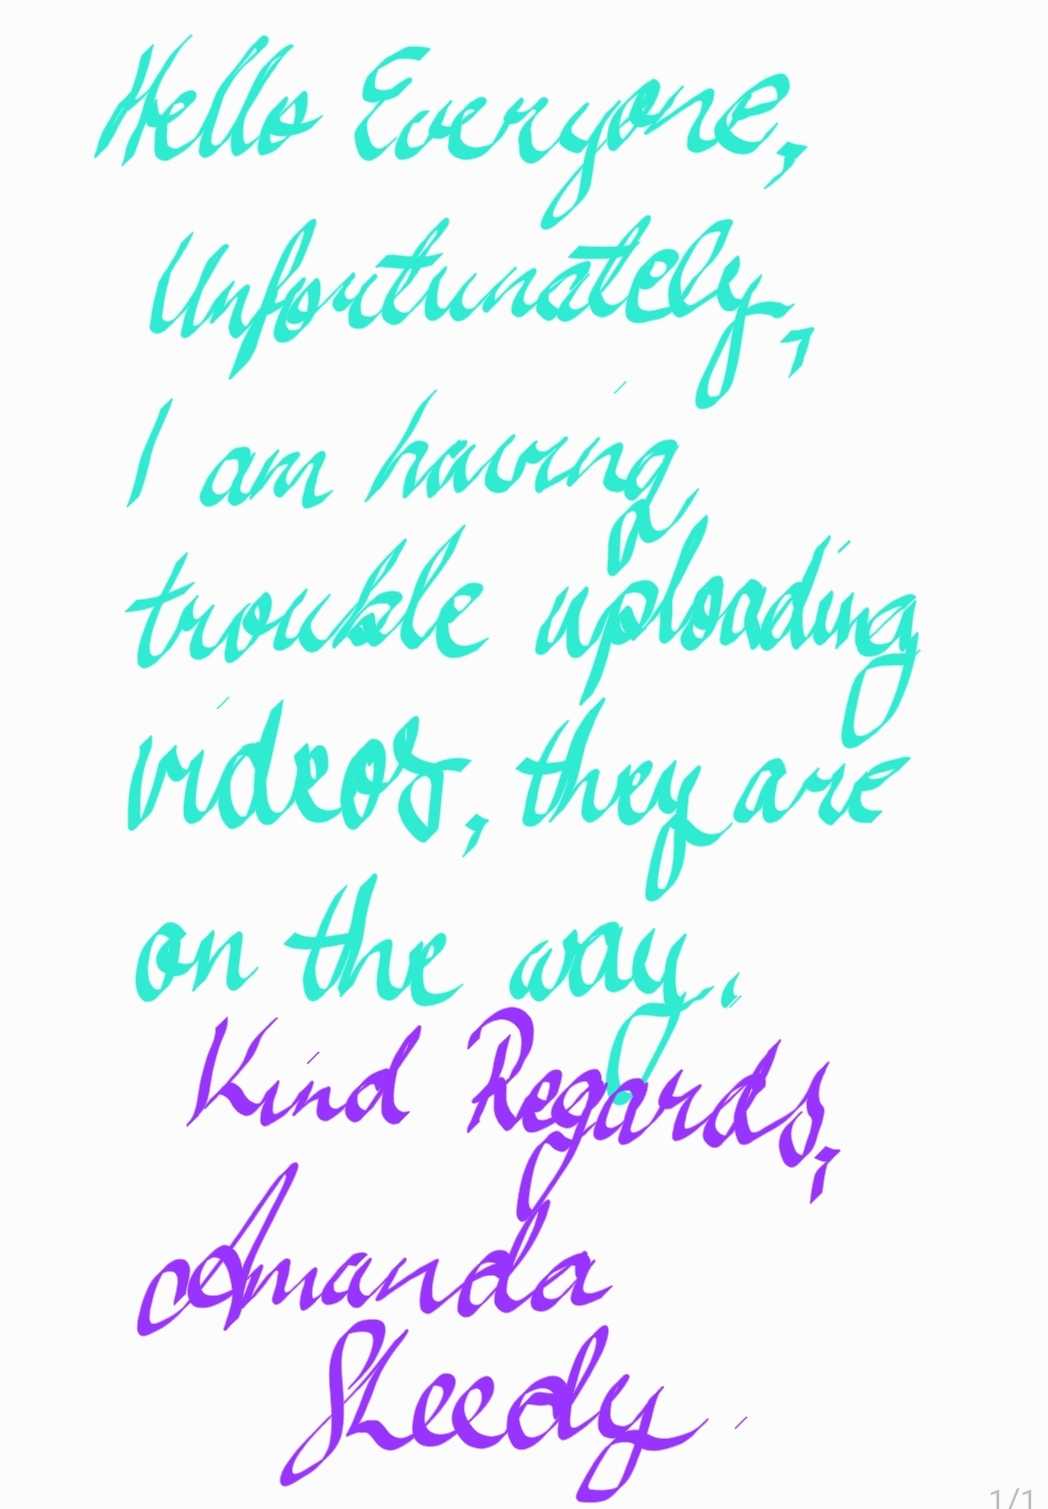 Hello Everyone,
Unfortunately,
I am having
trouble uploading
videos, they are
on the way.
Kind Regards,
Amanda
Sheedy.
1/1